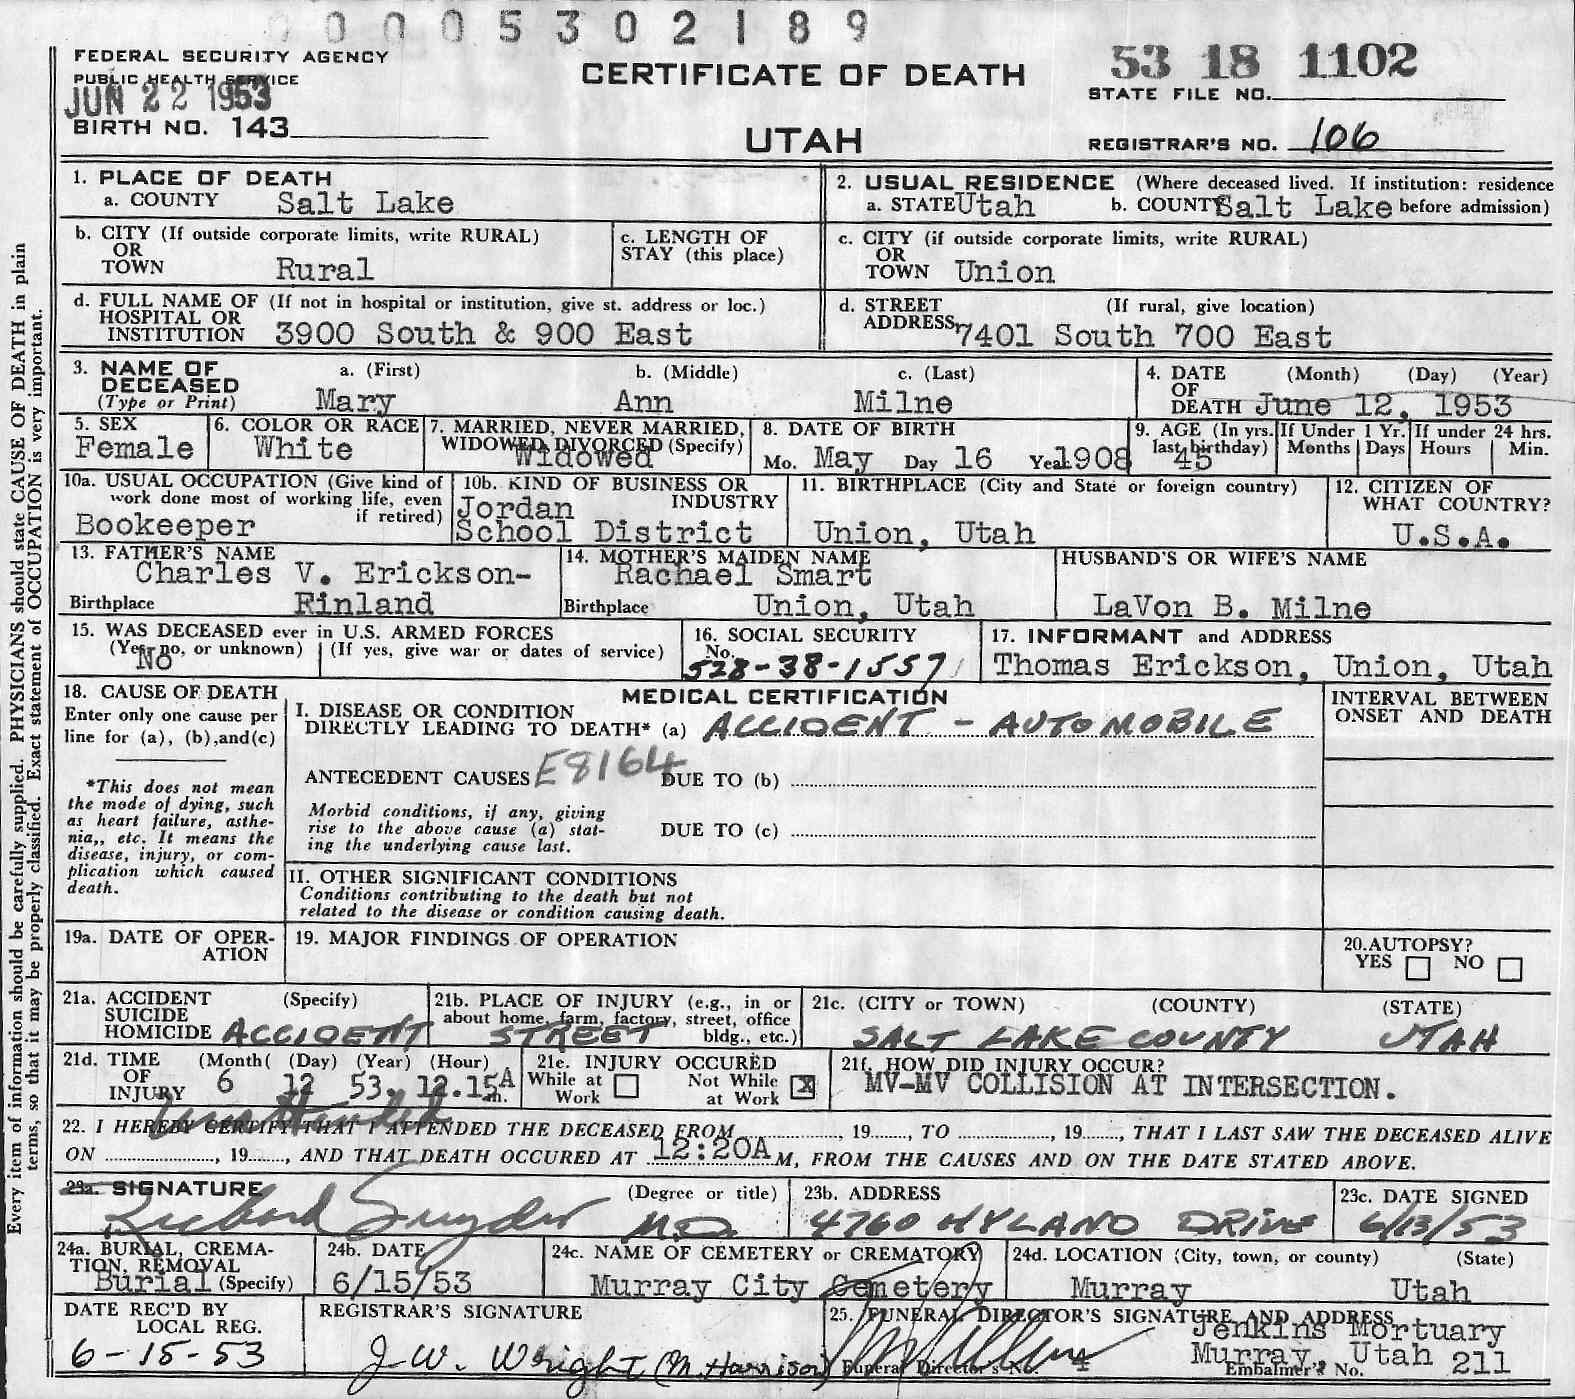 0005302189
FEDERAL SECURITY AGENCY
PUBLIC HEALTH SERVICE
JUN 22 1953
BIRTH NO. 143
CERTIFICATE OF DEATH
UTAH
53 18 1102
STATE FILE NO.
REGISTRAR'S NO. 106
Every item of information should be carefully supplied. PHYSICIANS should state CAUSE OF DEATH in plain
terms, so that it may be properly classified. Exact statement of OCCUPATION is very important.
1. PLACE OF DEATH
a. COUNTY Salt Lake
2. USUAL RESIDENCE (Where deceased lived. If institution: residence
a. STATE Utah b. COUNTY Salt Lake before admission)
b. CITY (If outside corporate limits, write RURAL)
OR
TOWN Rural
c. LENGTH OF
STAY (this place)
c. CITY (if outside corporate limits, write RURAL)
OR
TOWN Union
d. FULL NAME OF (If not in hospital or institution, give st. address or loc.)
HOSPITAL OR
INSTITUTION 3900 South & 900 East
d. STREET (If rural, give location)
ADDRESS 7401 South 700 East
3. NAME OF a. (First) b. (Middle) c. (Last)
DECEASED
(Type or Print) Mary Ann Milne
4. DATE (Month) (Day) (Year)
OF
DEATH June 12, 1953
5. SEX
Female
6. COLOR OR RACE
White
7. MARRIED, NEVER MARRIED,
WIDOWED DIVORCED (Specify)
Widowed
8. DATE OF BIRTH
Mo. May Day 16 Year 1908
9. AGE (In yrs.
last birthday)
45
If Under 1 Yr.
Months Days
If under 24 hrs.
Hours Min.
10a. USUAL OCCUPATION (Give kind of
work done most of working life, even
if retired)
Bookeeper
10b. KIND OF BUSINESS OR
INDUSTRY
Jordan
School District
11. BIRTHPLACE (City and State or foreign country)
Union, Utah
12. CITIZEN OF
WHAT COUNTRY?
U.S.A.
13. FATHER'S NAME
Charles V. Erickson-
Birthplace Finland
14. MOTHER'S MAIDEN NAME
Rachael Smart
Birthplace Union, Utah
HUSBAND'S OR WIFE'S NAME
LaVon B. Milne
15. WAS DECEASED ever in U.S. ARMED FORCES
(Yes, no, or unknown) (If yes, give war or dates of service)
No
16. SOCIAL SECURITY
No.
528-38-1557
17. INFORMANT and ADDRESS
Thomas Erickson, Union, Utah
18. CAUSE OF DEATH
Enter only one cause per
line for (a), (b), and (c)
*This does not mean
the mode of dying, such
as heart failure, asthe-
nia,, etc. It means the
disease, injury, or com-
plication which caused
death.
MEDICAL CERTIFICATION
I. DISEASE OR CONDITION
DIRECTLY LEADING TO DEATH* (a) ACCIDENT - AUTOMOBILE
ANTECEDENT CAUSES E8164 DUE TO (b)
Morbid conditions, if any, giving
rise to the above cause (a) stat-
ing the underlying cause last.
DUE TO (c)
II. OTHER SIGNIFICANT CONDITIONS
Conditions contributing to the death but not
related to the disease or condition causing death.
INTERVAL BETWEEN
ONSET AND DEATH
19a. DATE OF OPER-
ATION
19. MAJOR FINDINGS OF OPERATION
20. AUTOPSY?
YES NO
21a. ACCIDENT (Specify)
SUICIDE
HOMICIDE ACCIDENT
21b. PLACE OF INJURY (e.g., in or
about home, farm, factory, street, office
bldg., etc.)
STREET
21c. (CITY or TOWN) (COUNTY) (STATE)
SALT LAKE COUNTY UTAH
21d. TIME (Month( (Day) (Year) (Hour)
OF
INJURY 6 12 53. 12.15A m.
21e. INJURY OCCURED
While at Work Not While at Work X
21f. HOW DID INJURY OCCUR?
MV-MV COLLISION AT INTERSECTION.
Unattended
22. I HEREBY CERTIFY THAT I ATTENDED THE DECEASED FROM , 19 , TO , 19 , THAT I LAST SAW THE DECEASED ALIVE
ON , 19 , AND THAT DEATH OCCURED AT 12:20A M, FROM THE CAUSES AND ON THE DATE STATED ABOVE.
23a. SIGNATURE (Degree or title)
Richard Snyder M.D.
23b. ADDRESS
4760 HYLAND DRIVE
23c. DATE SIGNED
6/13/53
24a. BURIAL, CREMA-
TION, REMOVAL
Burial (Specify)
24b. DATE
6/15/53
24c. NAME OF CEMETERY or CREMATORY
Murray City Cemetery
24d. LOCATION (City, town, or county) (State)
Murray Utah
DATE REC'D BY
LOCAL REG.
6-15-53
REGISTRAR'S SIGNATURE
J.W. Wright (M. Harrison)
25. FUNERAL DIRECTOR'S SIGNATURE AND ADDRESS
Jenkins Mortuary
Murray, Utah
Funeral Director's No. 4
Embalmer's No. 211